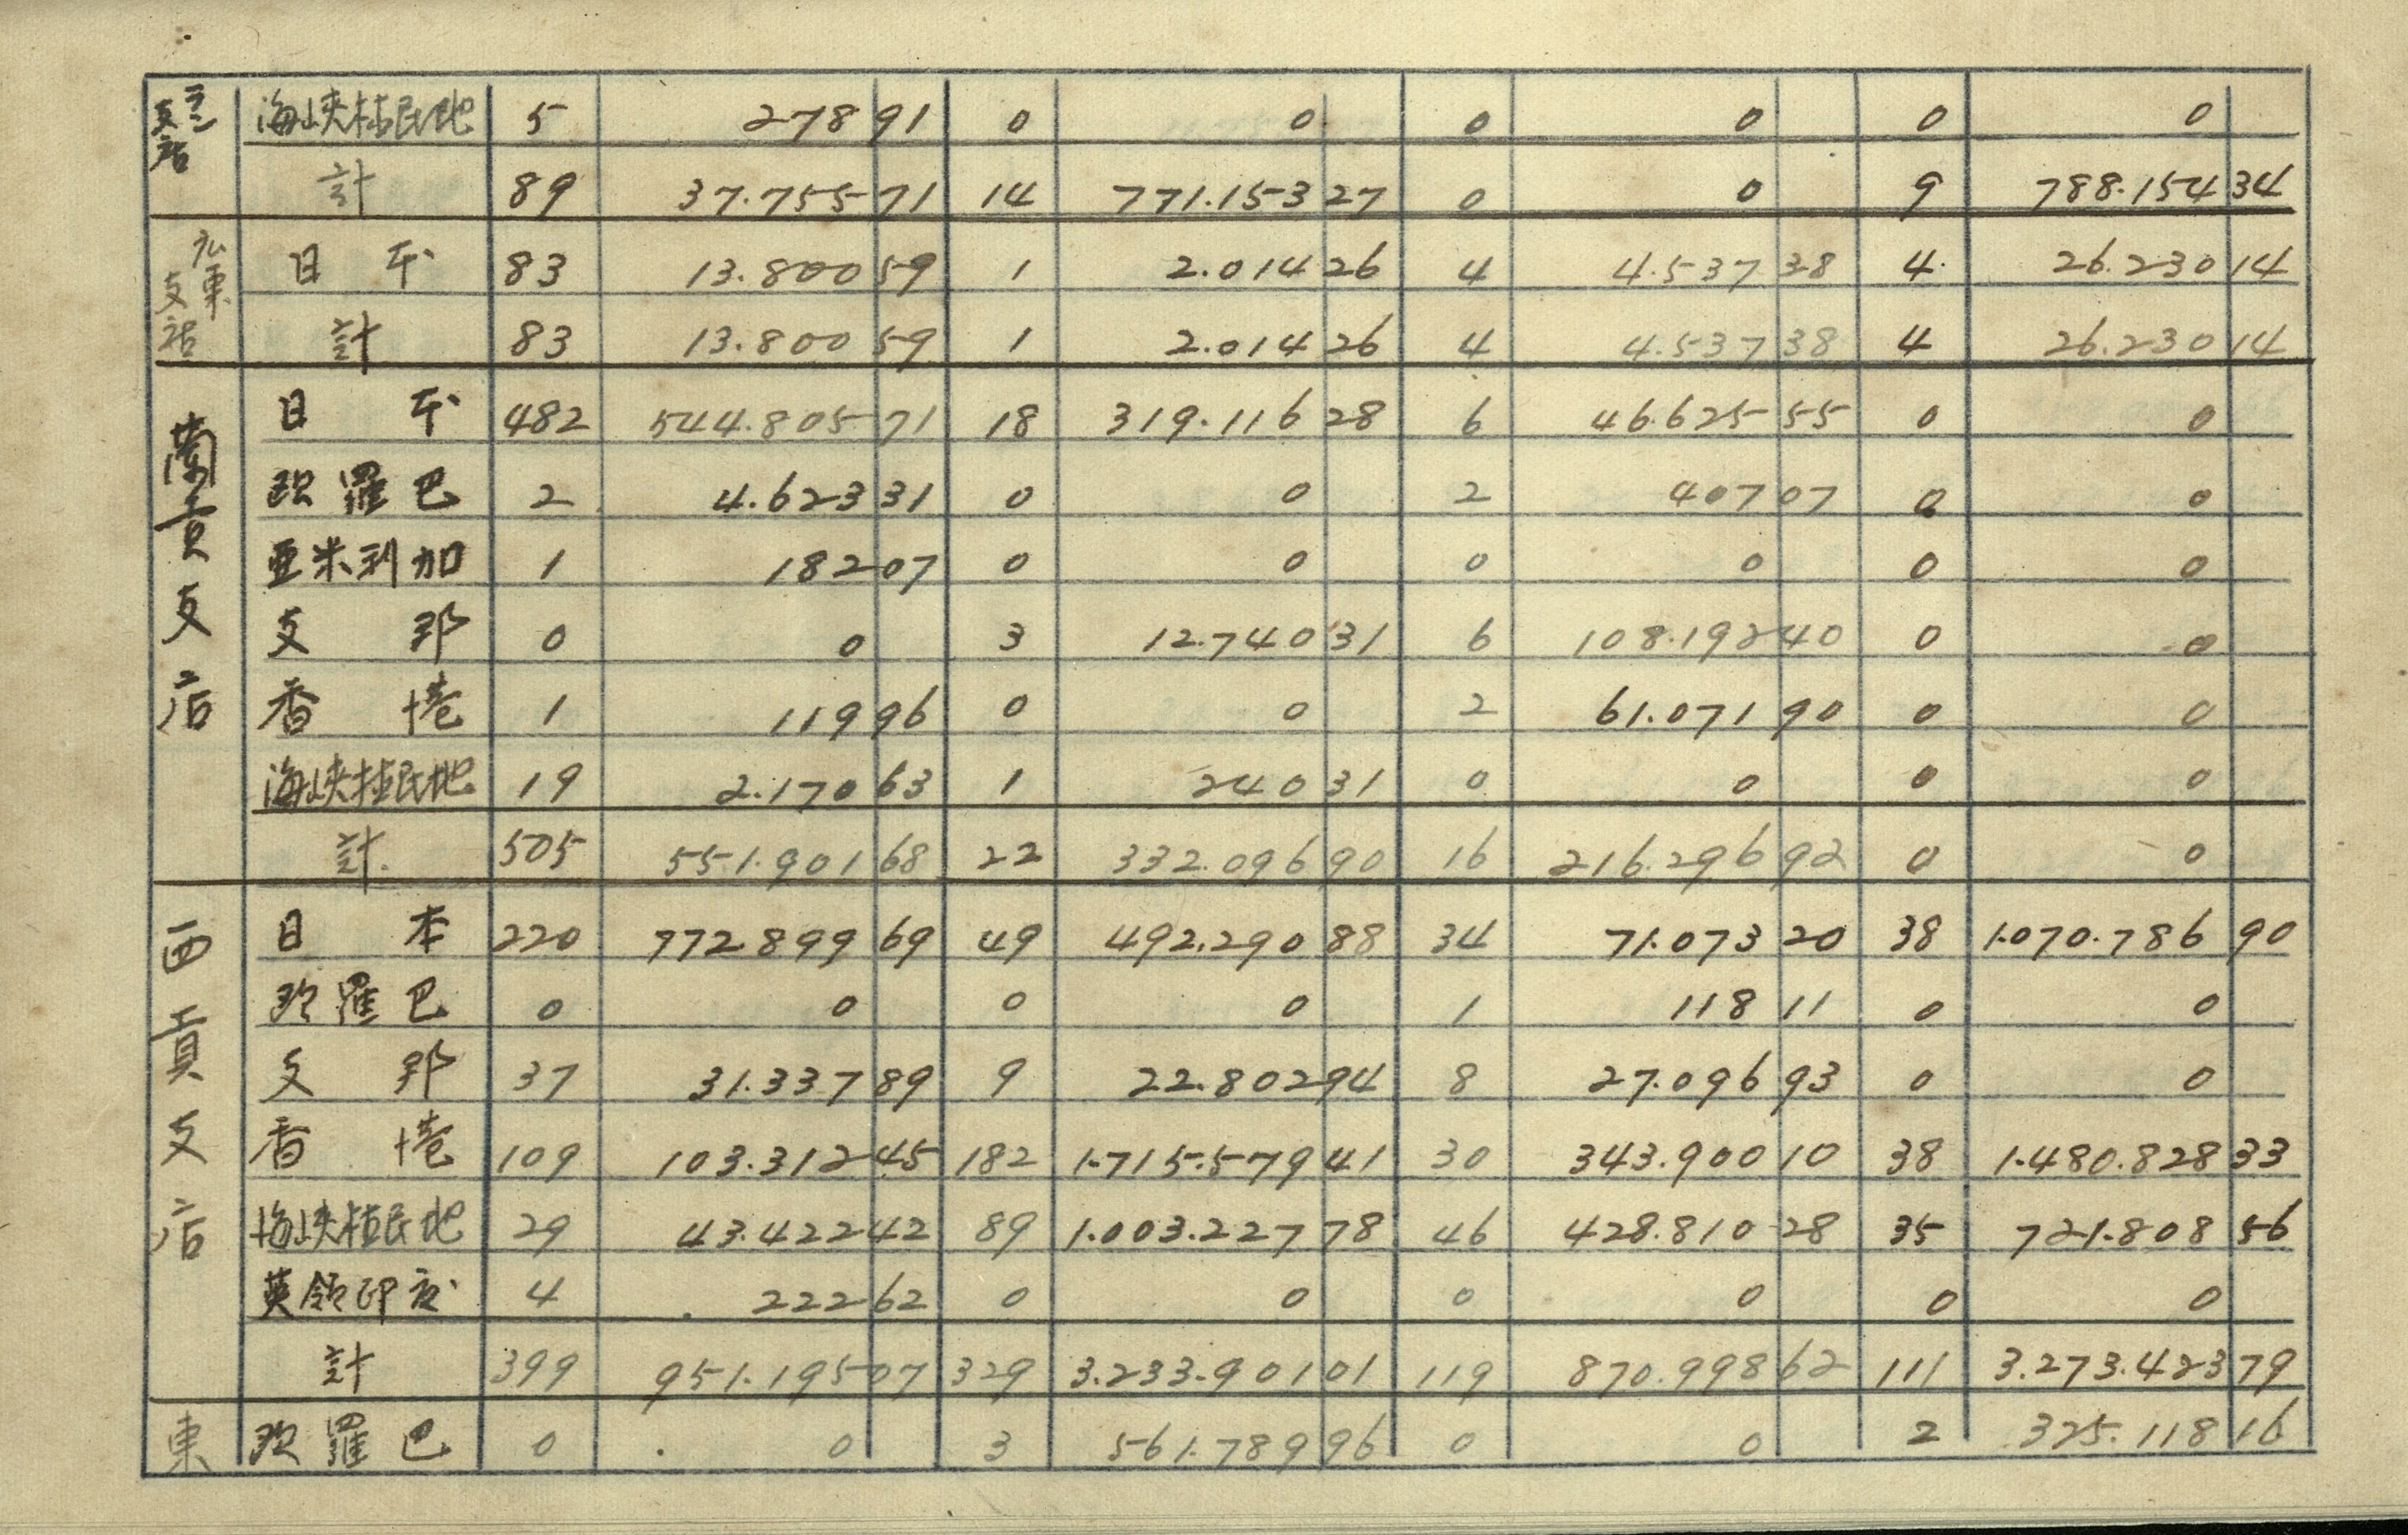 支店 海峡植民地 5 278 91 0 0 0 0 0 0
計 89 37.755 71 14 771.153 27 0 0 9 788.154 34
広東支店 日本 83 13.800 59 1 2.014 26 4 4.537 38 4 26.230 14
計 83 13.800 59 1 2.014 26 4 4.537 38 4 26.230 14
蘭貢支店 日本 482 544.805 71 18 319.116 28 6 46.625 55 0 0
欧羅巴 2 4.623 31 0 0 2 407 07 0 0
亜米利加 1 182 07 0 0 0 0 0 0
支那 0 0 3 12.740 31 6 108.192 40 0 0
香港 1 119 96 0 0 2 61.071 90 0 0
海峡植民地 19 2.170 63 1 240 31 0 0 0 0
計 505 551.901 68 22 332.096 90 16 216.296 92 0 0
西貢支店 日本 220 772899 69 49 492.290 88 34 71.073 20 38 1.070.786 90
欧羅巴 0 0 0 0 1 118 11 0 0
支那 37 31.337 89 9 22.802 94 8 27.096 93 0 0
香港 109 103.312 45 182 1.715.579 41 30 343.900 10 38 1.480.828 33
海峡植民地 29 43.422 42 89 1.003.227 78 46 428.810 28 35 721.808 56
英領印度 4 222 62 0 0 0 0 0 0
計 399 951.195 07 329 3.233.901 01 119 870.998 62 111 3.273.423 79
東 欧羅巴 0 0 3 561.789 96 0 0 2 325.118 16